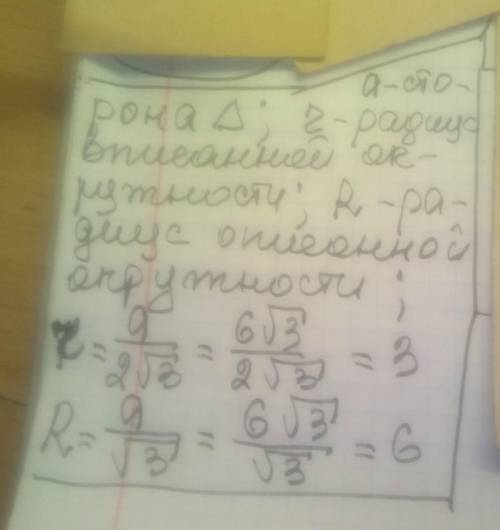 а-сто-
рона △; r-радиус
вписанной ок-
ружности; R-ра-
диус описанной
окружности;
r = a/2√3 = 6√3/2√3 = 3
R = a/√3 = 6√3/√3 = 6